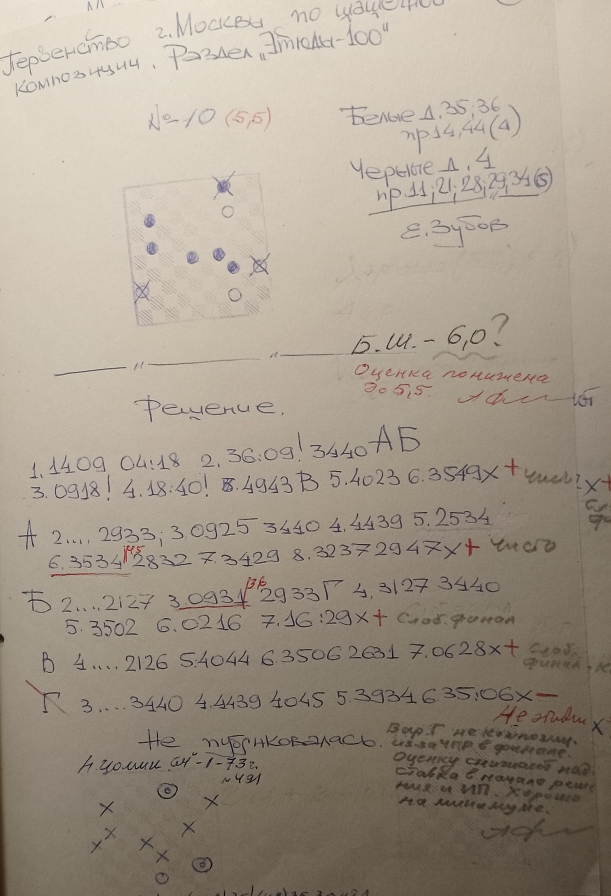 Первенство г.Москвы по шашечной
композиции. Раздел „Этюды-100"
№-10 (5,5)
Белые д. 35; 36
пр 14, 44 (4)
Черные д. 4
пр. 11; 21; 28; 29, 34 (6)
Е. Зубов
Б.Ш. - 6,0?
Оценка понижена
до 5,5.
Решение.
1. 1409 04:18 2. 36:09! 3440 А Б
3. 0918! 4. 18:40! 4943 В 5. 4023 6. 3549х +
А 2.... 2933; 3. 0925 3440 4. 4439 5. 2534
6. 3534 2832 7. 3429 8. 3237 2947х + чисто
Б 2.... 2127 3. 0931 2933 Г 4. 3127 3440
5. 3502 6. 0216 7. 16:29х + слаб. финал
В 4.... 2126 5. 4044 6. 3506 2631 7. 0628х + слаб.
финал
Г 3.... 3440 4. 4439 4045 5. 3934 6. 35:06х −
Не этюдн
Не публиковалась.
Вар. Г не композиц.
из-за ЧПР в финале.
Оценку снижает под
ставка в начале реше
ния и ИП. Хорошо
на минимуме.
А. Цомик "64"-1-73г.
№491